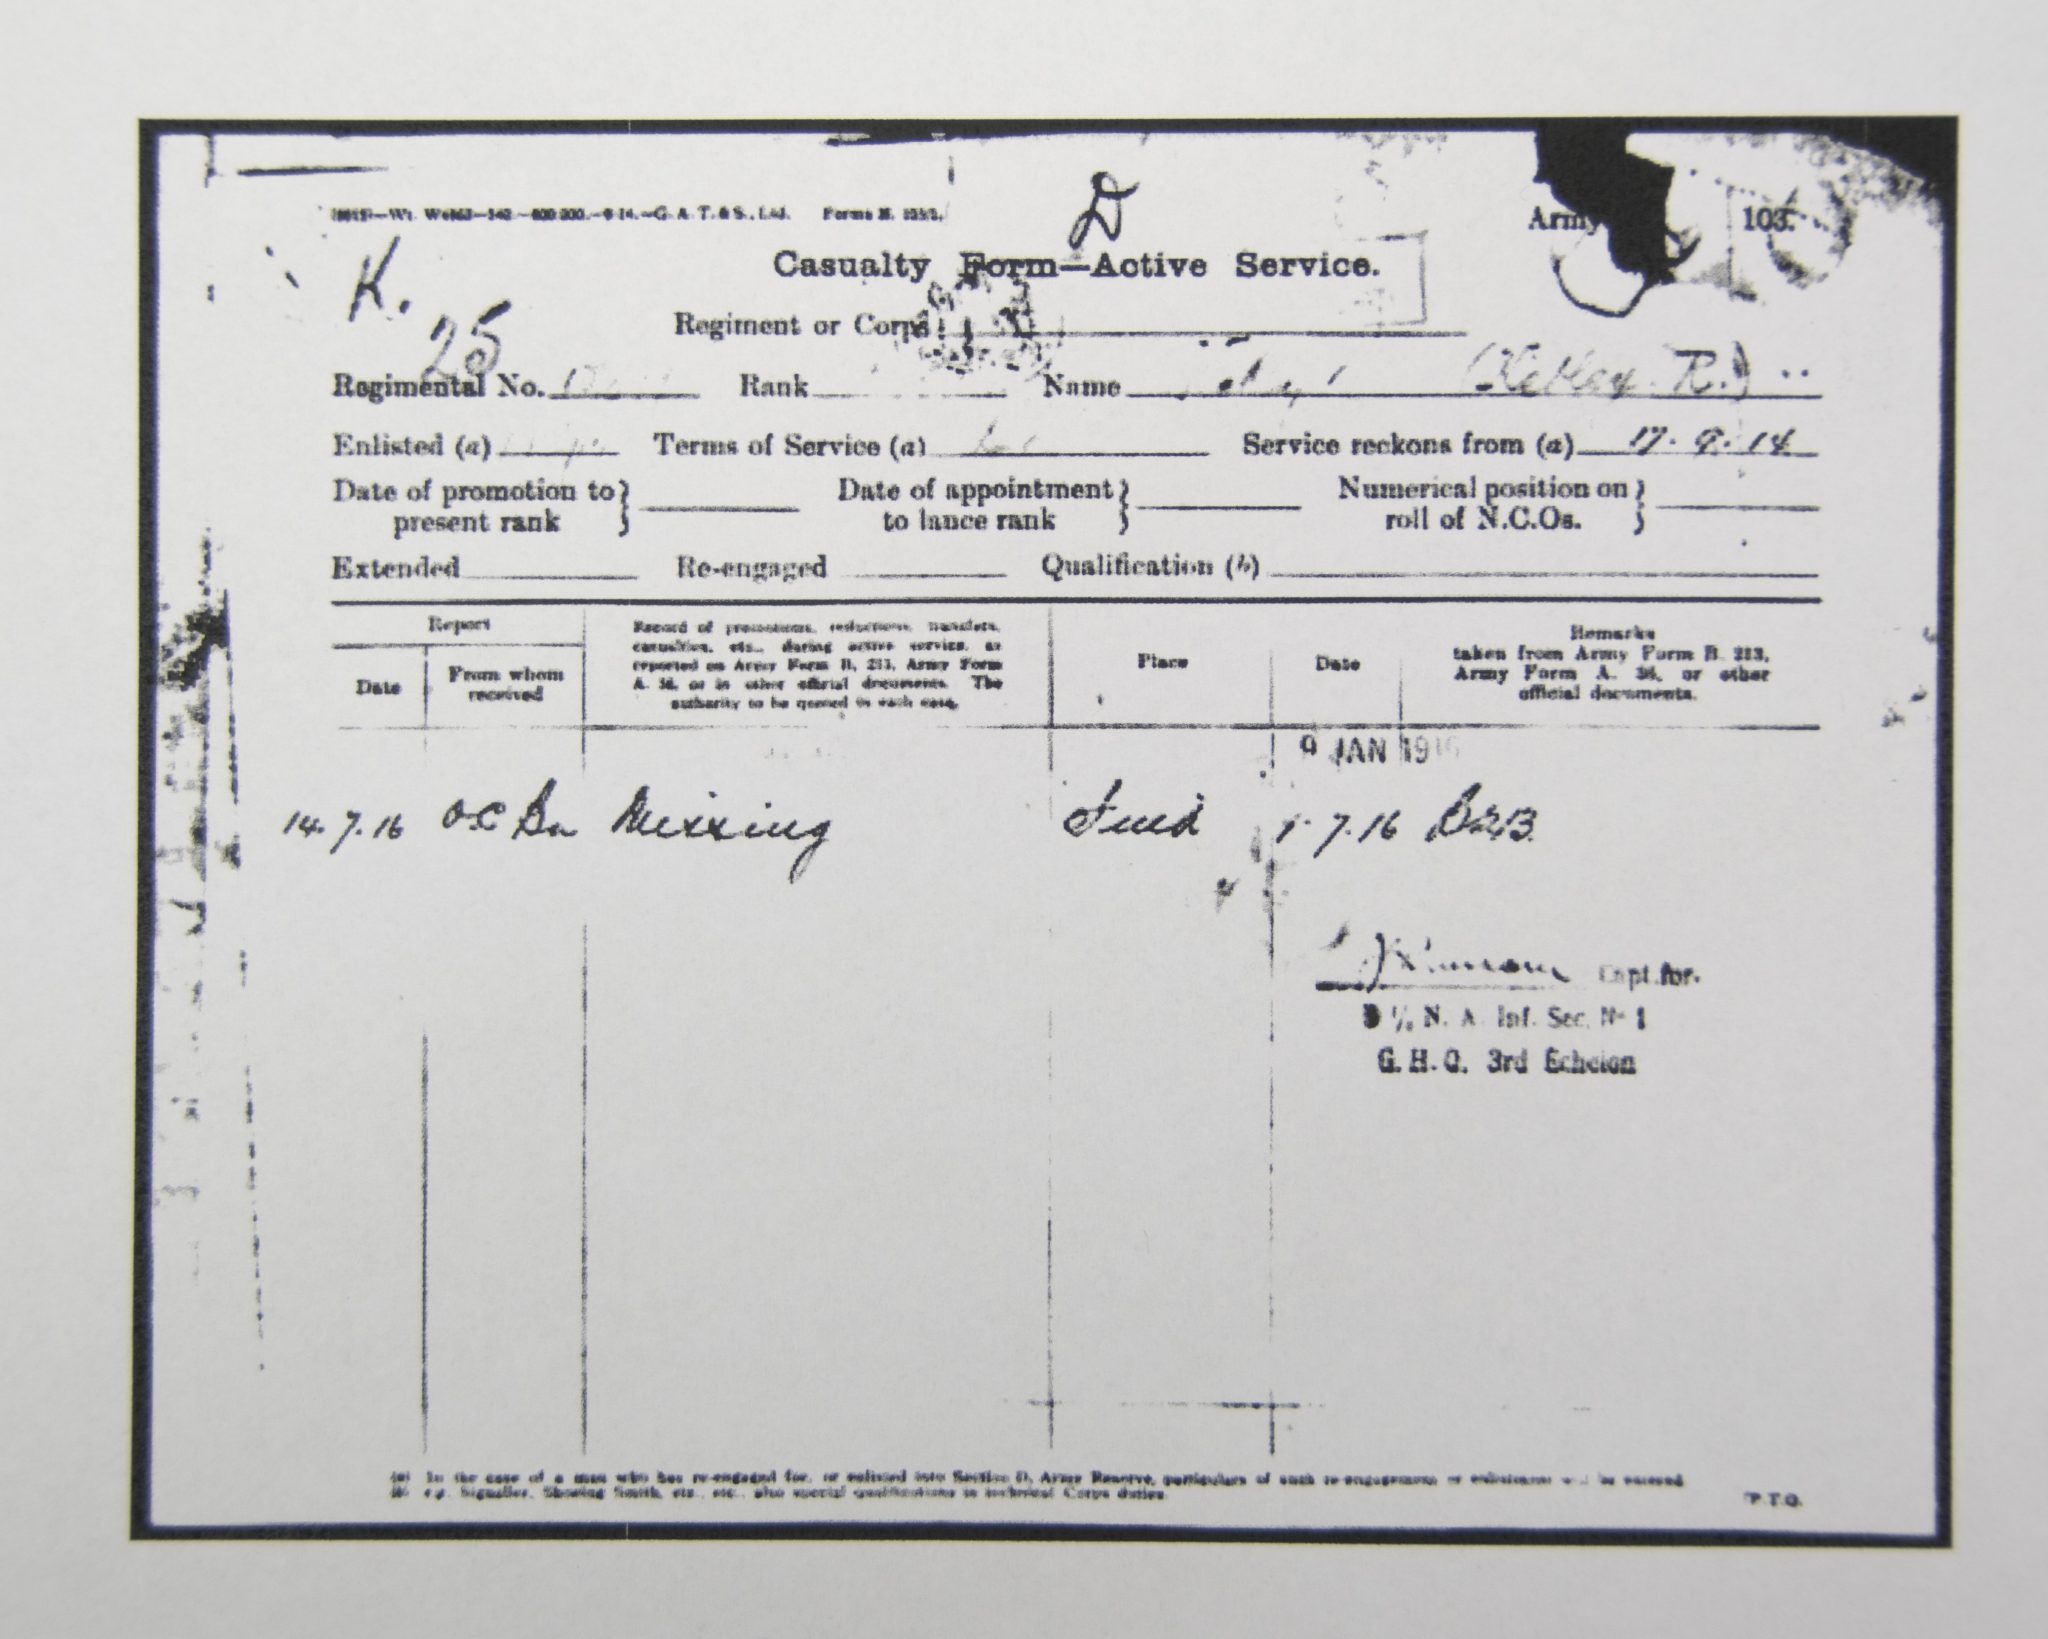 D
Army 103.
Casualty Form—Active Service.
K.
25
Regiment or Corps
Regimental No. Rank Name R.)
Enlisted (a) Terms of Service (a) Service reckons from (a) 17. 9. 14
Date of promotion to present rank } Date of appointment to lance rank } Numerical position on roll of N.C.Os. }
Extended Re-engaged Qualification (b)
Report
Date
From whom received
Record of promotions, reductions, transfers,
casualties, etc., during active service, as
reported on Army Form B. 213, Army Form
A. 36, or in other official documents. The
authority to be quoted in each case.
Place
Date
Remarks
taken from Army Form B. 213,
Army Form A. 36, or other
official documents.
9 JAN 1916
14.7.16 O.C Bn Missing Field 1.7.16 B213
Capt. for
N. A. Inf. Sec. No 1
G. H. Q. 3rd Echelon
(a) In the case of a man who has re-engaged for, or enlisted into Section D, Army Reserve, particulars of such re-engagement or enlistment will be entered
(b) e.g. Signaller, Shoeing Smith, etc., etc., also special qualifications in technical Corps duties.
P.T.O.